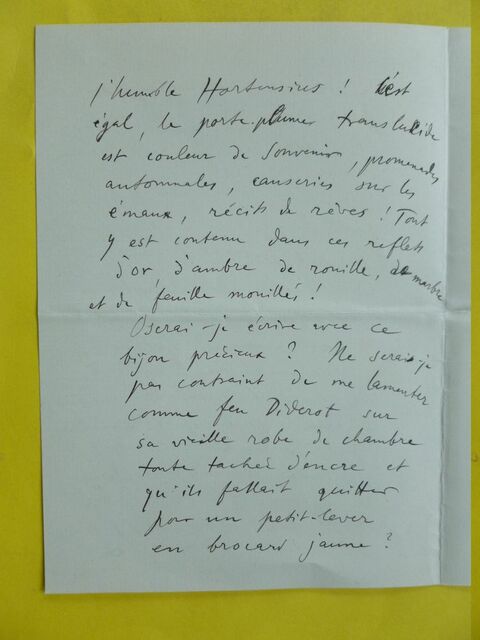 l'humble Hortensius ! C'est
égal, le porte-plumes translucide
est couleur de souvenirs, promenades
automnales, causeries sur les
émaux, récits de rêves ! Tout
y est contenu dans ces reflets
d'or, d'ambre de rouille, de marbre
et de feuille mouillés !
Oserai-je écrire avec ce
bijou précieux ? Ne serai-je
pas contraint de me lamenter
comme feu Diderot sur
sa vieille robe de chambre
toute tachée d'encre et
qu'ils fallait quitter
pour un petit-lever
en brocard jaune ?